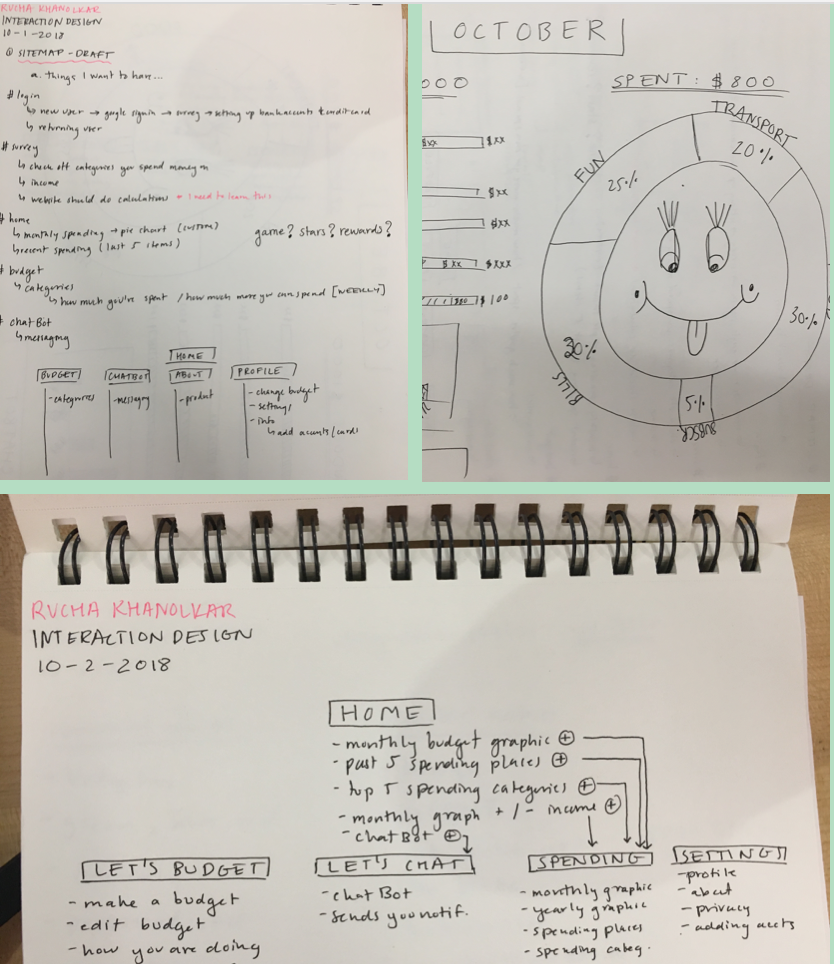 RUCHA KHANOLKAR
INTERACTION DESIGN
10-1-2018
① SITEMAP - DRAFT
a. things I want to have...
# login
↳ new user → google signin → survey → setting up bank accounts & credit card
↳ returning user
# survey
↳ check off categories you spend money on
↳ income
↳ website should do calculations * I need to learn this
# home
↳ monthly spending → pie chart (custom)
↳ recent spending (last 5 items)
game? stars? rewards?
# budget
↳ categories
↳ how much you've spent / how much more you can spend [WEEKLY]
# chatBot
↳ messaging
HOME
BUDGET CHATBOT ABOUT PROFILE
- categories - messaging - product - change budget
- settings
- info
↳ add accounts/cards
OCTOBER
000
SPENT: $800
TRANSPORT
20%
FUN
25%
$xx $xx
$xx
$xx
$xx $xxx
$100
30%
20%
BILLS
5%
SUBSCR
RUCHA KHANOLKAR
INTERACTION DESIGN
10-2-2018
HOME
- monthly budget graphic ⊕
- past 5 spending places ⊕
- top 5 spending categories ⊕
- monthly graph +/- income ⊕
- chatBot ⊕
LET'S BUDGET
- make a budget
- edit budget
- how you are doing
LET'S CHAT
- chatBot
- sends you notif.
SPENDING
- monthly graphic
- yearly graphic
- spending places
- spending categ.
SETTINGS
- profile
- about
- privacy
- adding accts